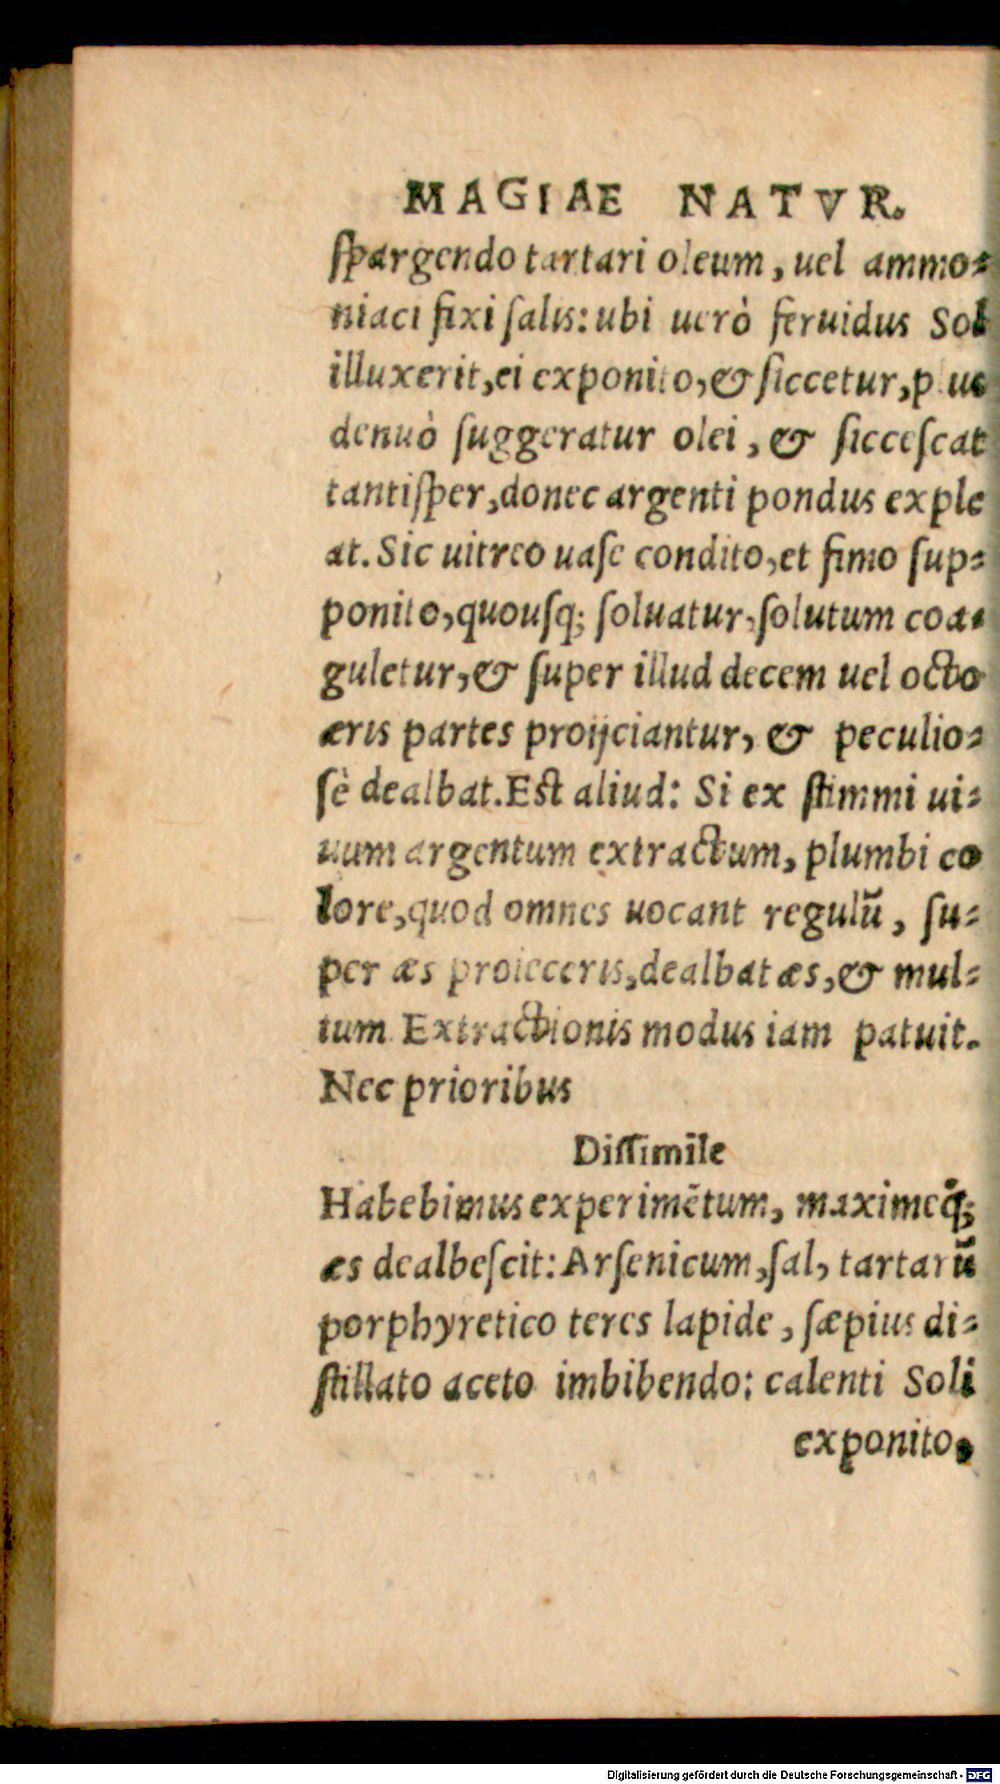 MAGIAE NATVR.
ſpargendo tartari oleum, uel ammo-
niaci fixi ſalis: ubi uerò feruidus Sol
illuxerit, ei exponito, & ſiccetur,
denuò ſuggeratur olei, & ſicceſcat
tantiſper, donec argenti pondus exple
at. Sic uitreo uaſe condito, et fimo ſup-
ponito, quouſq; ſoluatur, ſolutum coa-
guletur, & ſuper illud decem uel octo
æris partes proijciantur, & peculio-
ſè dealbat. Est aliud: Si ex ſtimmi ui-
uum argentum extractum, plumbi co
lore, quod omnes uocant regulū, ſu-
per æs proieceris, dealbat æs, & mul-
tum. Extractionis modus iam patuit.
Nec prioribus
Diſſimile
Habebimus experimētum, maximeq́;
æs dealbeſcit: Arſenicum, ſal, tartarū
porphyretico teres lapide, ſæpius di-
ſtillato aceto imbibendo: calenti Soli
exponito,
Digitalisierung gefördert durch die Deutsche Forschungsgemeinschaft - DFG